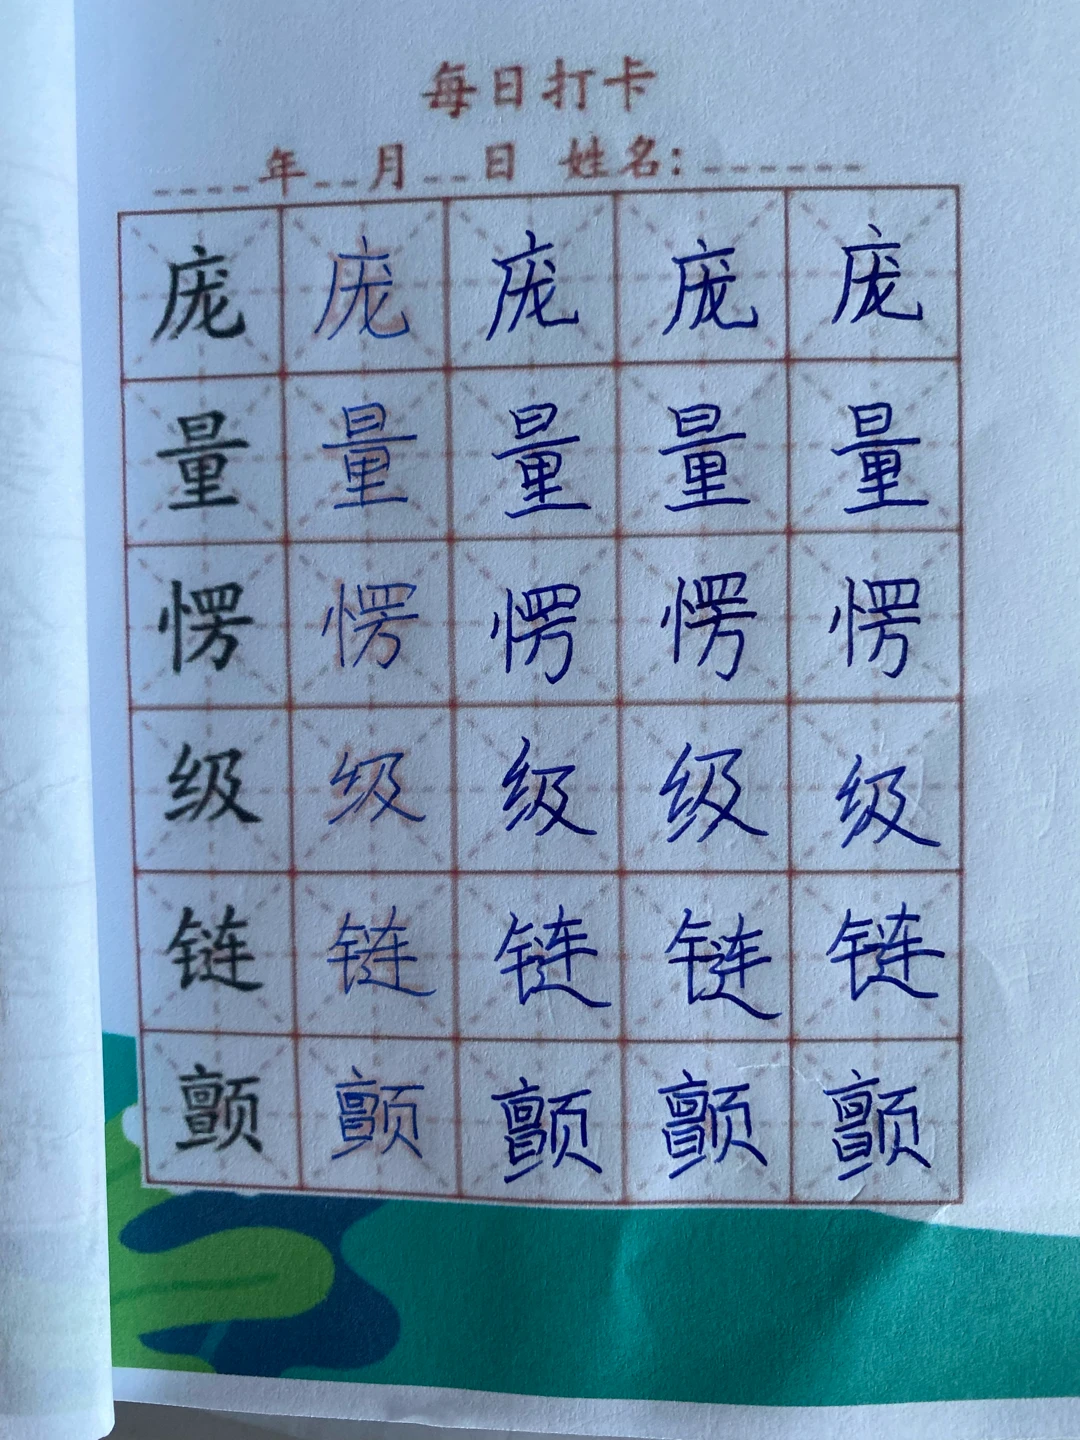 每日打卡
年 月 日 姓名:
庞 庞 庞 庞 庞
量 量 量 量 量
愣 愣 愣 愣 愣
级 级 级 级 级
链 链 链 链 链
颤 颤 颤 颤 颤